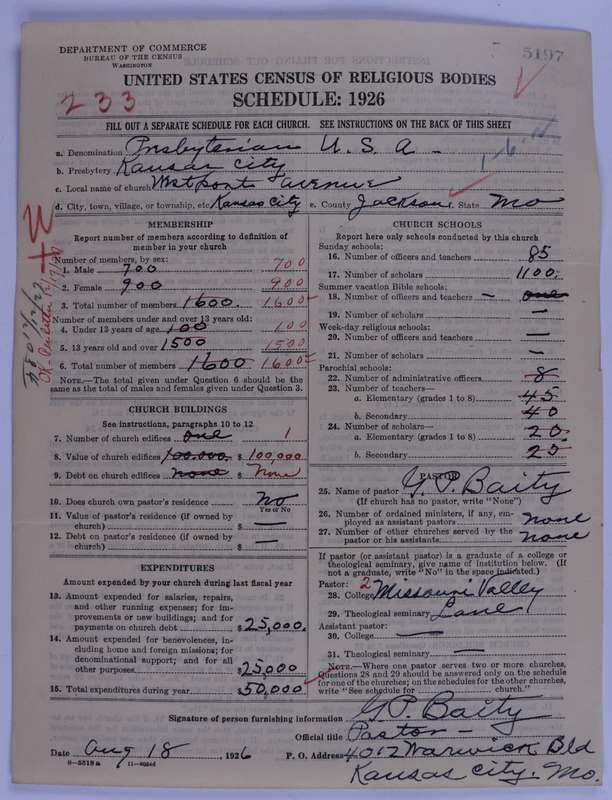 DEPARTMENT OF COMMERCE
BUREAU OF THE CENSUS
WASHINGTON
5197
UNITED STATES CENSUS OF RELIGIOUS BODIES
SCHEDULE: 1926
233
FILL OUT A SEPARATE SCHEDULE FOR EACH CHURCH. SEE INSTRUCTIONS ON THE BACK OF THIS SHEET
a. Denomination Presbyterian U. S. A -
b. Presbytery Kansas City
1-6-
c. Local name of church Westport Avenue
d. City, town, village, or township, etc Kansas City e. County Jackson f. State Mo
MEMBERSHIP
Report number of members according to definition of
member in your church
Number of members, by sex:
1. Male 700 700
2. Female 900 900
3. Total number of members 1600. 1600
Number of members under and over 13 years old:
4. Under 13 years of age 100 100
5. 13 years old and over 1500 1500
6. Total number of members 1600 1600
NOTE.—The total given under Question 6 should be the
same as the total of males and females given under Question 3.
CHURCH BUILDINGS
See instructions, paragraphs 10 to 12
7. Number of church edifices one 1
8. Value of church edifices 100,000. $ 100,000
9. Debt on church edifices none $ None
10. Does church own pastor's residence No
Yes or No
11. Value of pastor's residence (if owned by
church) $ —
12. Debt on pastor's residence (if owned by
church) $ —
EXPENDITURES
Amount expended by your church during last fiscal year
13. Amount expended for salaries, repairs,
and other running expenses; for im-
provements or new buildings; and for
payments on church debt $ 25,000.
14. Amount expended for benevolences, in-
cluding home and foreign missions; for
denominational support; and for all
other purposes $ 25,000
15. Total expenditures during year $ 50,000
CHURCH SCHOOLS
Report here only schools conducted by this church
Sunday schools:
16. Number of officers and teachers 85
17. Number of scholars 1100.
Summer vacation Bible schools:
18. Number of officers and teachers — one
19. Number of scholars —
Week-day religious schools:
20. Number of officers and teachers —
21. Number of scholars -
Parochial schools:
22. Number of administrative officers 8
23. Number of teachers—
a. Elementary (grades 1 to 8) 45
b. Secondary 40
24. Number of scholars—
a. Elementary (grades 1 to 8) 20.
b. Secondary 25
PASTOR
25. Name of pastor G. P. Baity
(If church has no pastor, write "None")
26. Number of ordained ministers, if any, em-
ployed as assistant pastors none
27. Number of other churches served by the
pastor or his assistants none
If pastor (or assistant pastor) is a graduate of a college or
theological seminary, give name of institution below. (If
not a graduate, write "No" in the space indicated.)
Pastor: 2
28. College Missouri Valley
29. Theological seminary Lane
Assistant pastor:
30. College —
31. Theological seminary —
NOTE.—Where one pastor serves two or more churches,
Questions 28 and 29 should be answered only on the schedule
for one of the churches; on the schedules for the other churches,
write "See schedule for church."
Signature of person furnishing information G. P. Baity
Official title Pastor -
Date Aug 18, 1926 P. O. Address 4012 Warwick Bld
8-5518a
Kansas City. Mo.